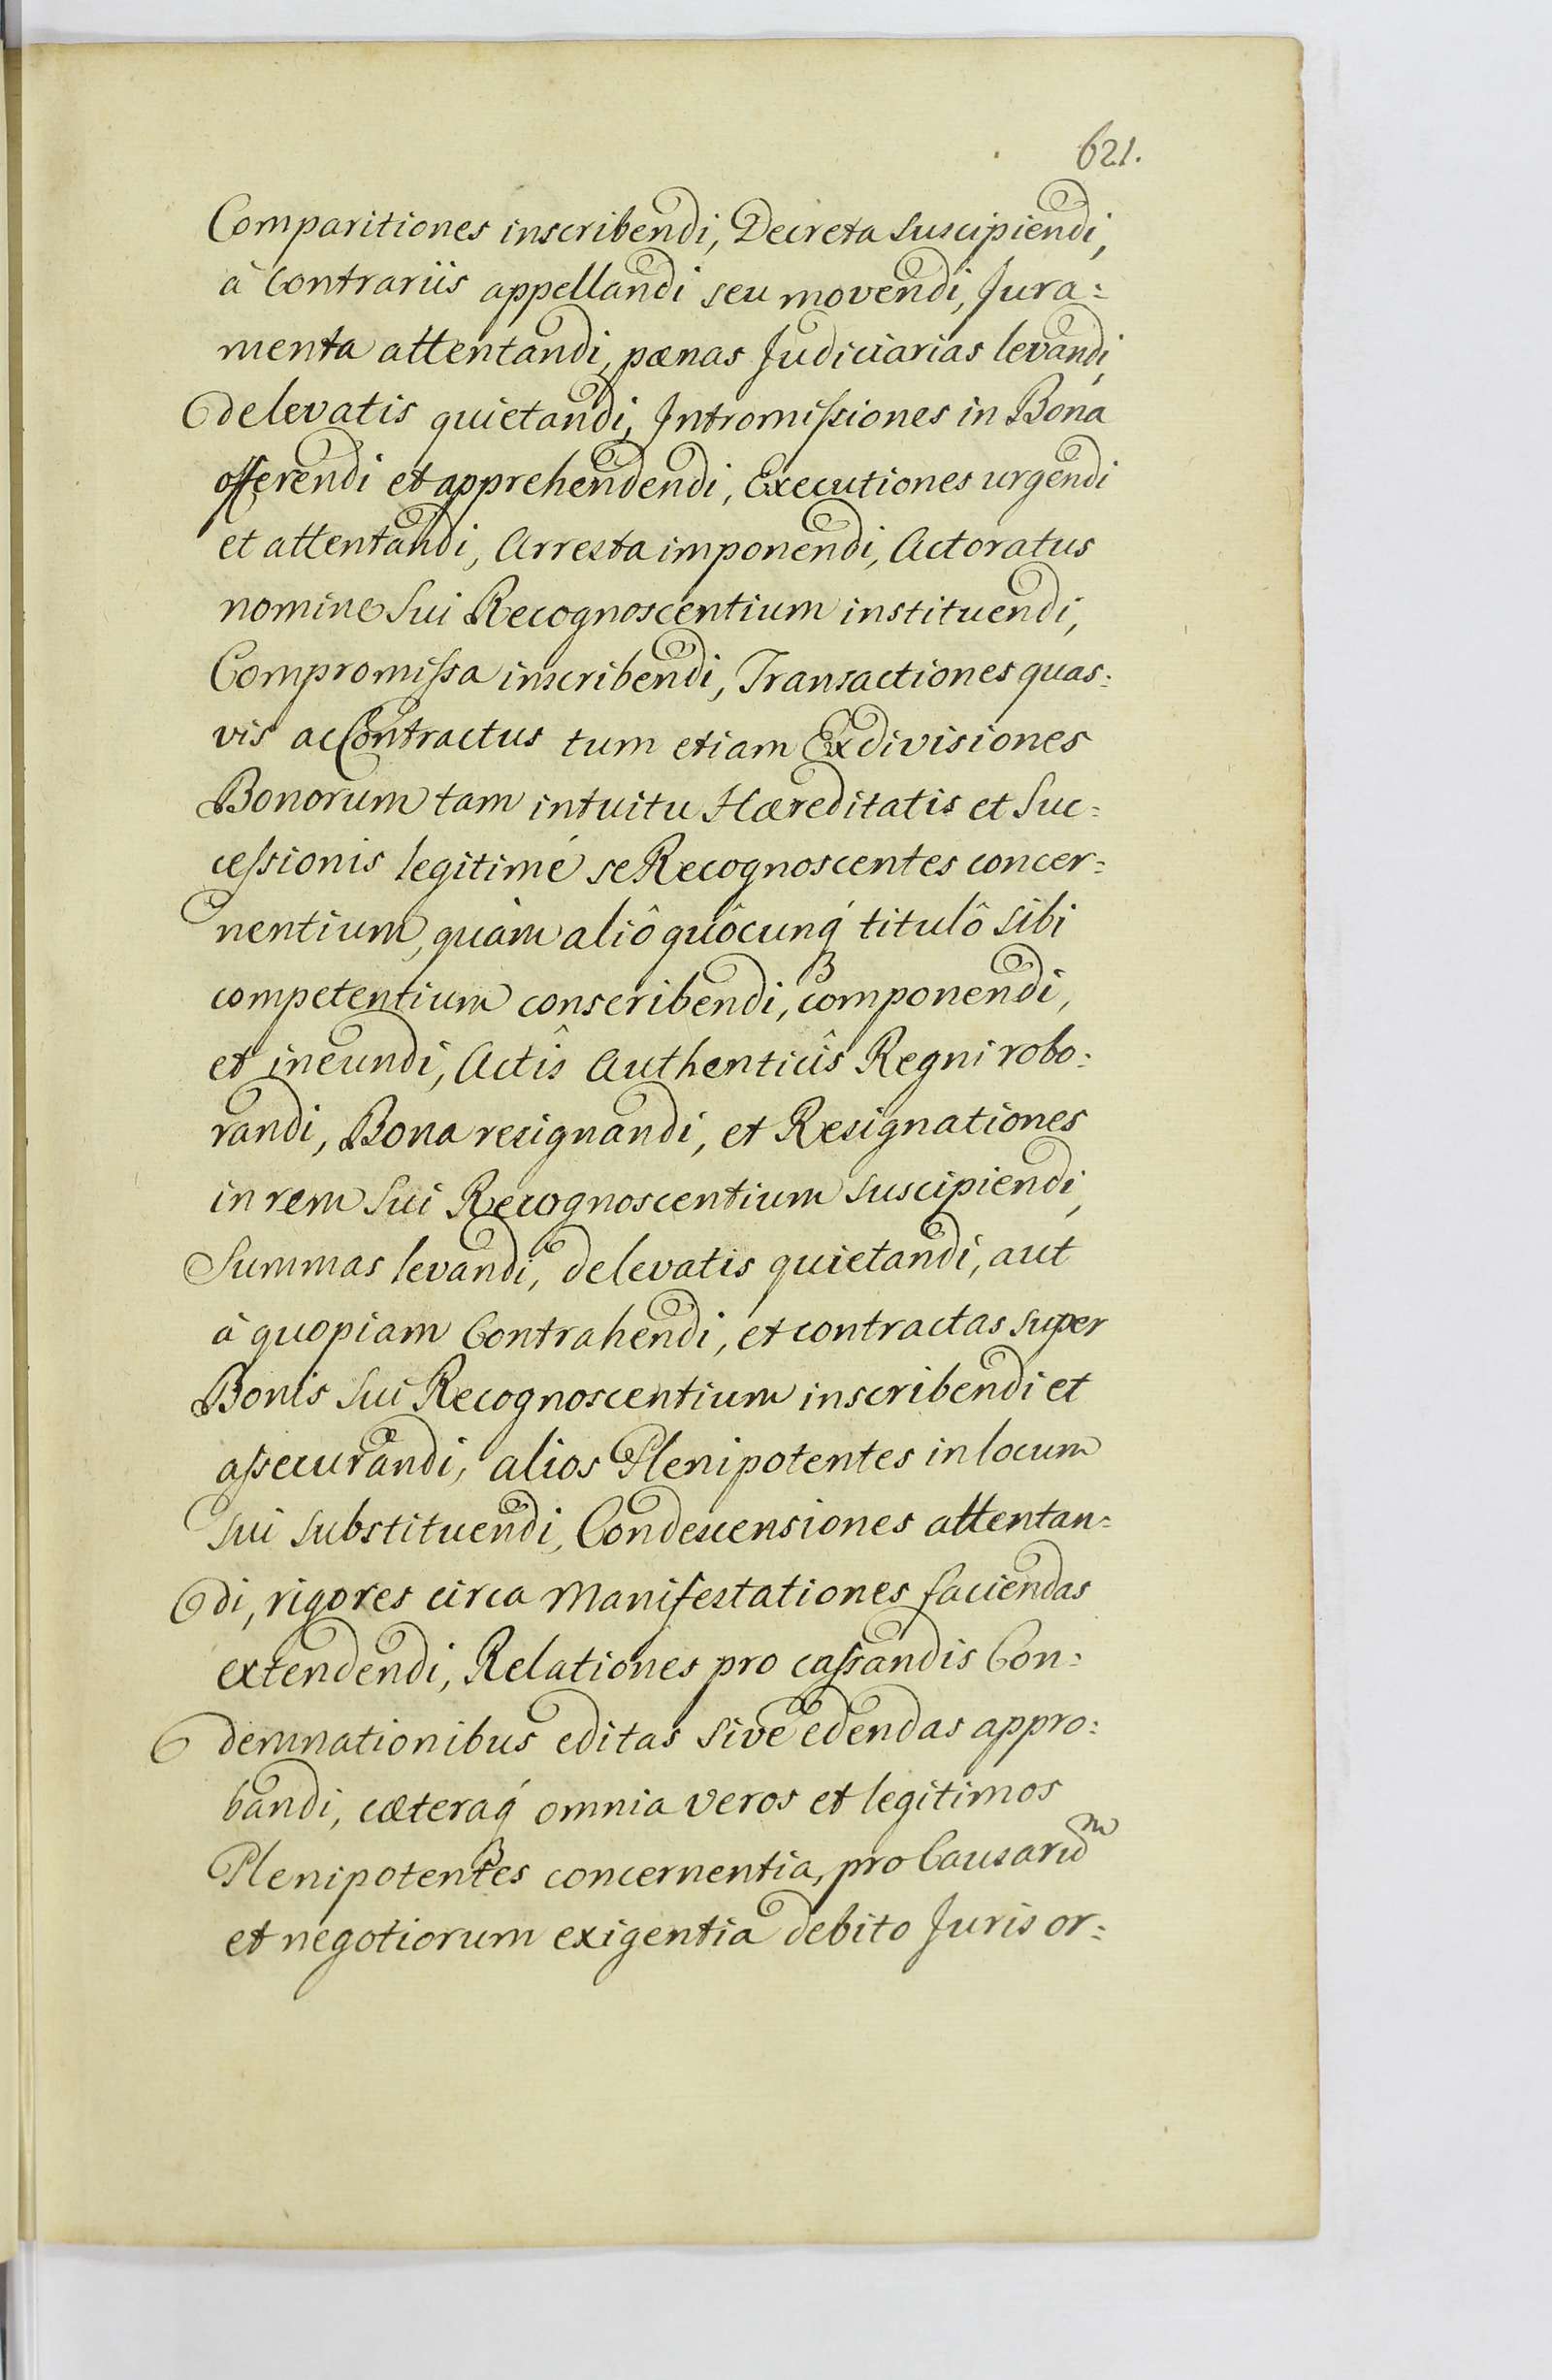 621.
Comparitiones inscribendi, Decreta suscipiendi,
à Contrariis appellandi seu movendi, Jura:
menta attentandi, pænas Judiciarias levandi,
delevatis quietandi, Intromissiones in Bona
offerendi et apprehendendi, Executiones urgendi
et attentandi, Arresta imponendi, Actoratus
nomine Sui Recognoscentium instituendi,
Compromissa inscribendi, Transactiones quas:
vis ac Contractus tum etiam Exdivisiones
Bonorum tam intuitu Hæreditatis et Suc:
cessionis legitimé se Recognoscentes concer:
nentium, quàm aliô quôcunq́ titulô sibi
competentium conscribendi, componendi,
et ineundi, Actîs Authenticîs Regni robo:
randi, Bona resignandi, et Resignationes
in rem Sui Recognoscentium suscipiendi,
Summas levandi, delevatis quietandi, aut
à quopiam Contrahendi, et contractas super
Bonis Sui Recognoscentium inscribendi et
assecurandi, alios Plenipotentes in locum
sui substituendi, Condescensiones attentan:
di, rigores circa Manifestationes faciendas
extendendi, Relationes pro cassandis Con:
demnationibus editas sive edendas appro:
bandi, cæteraq́ omnia veros et legitimos
Plenipotentes concernentia, pro Causaruᵐ
et negotiorum exigentia debito Juris or: